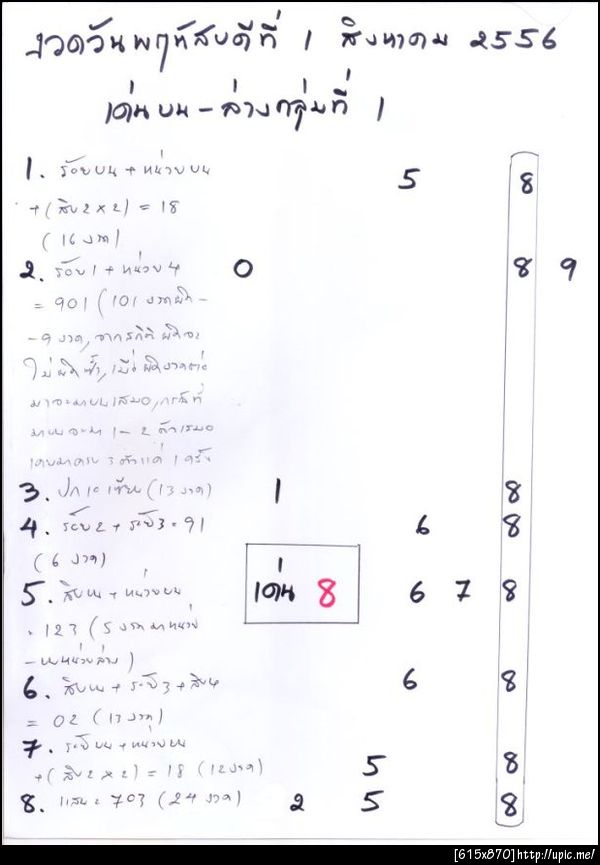 งวดวันพฤหัสบดีที่ 1 สิงหาคม 2556
เด่นบน-ล่างกลุ่มที่ 1
1. ร้อยบน + หน่วยบน 5 8
+(สิบ2×2) = 18
(16 งวด)
2. ร้อย1 + หน่วย4 0 8 9
= 901 (101 งวดผิด-
-9 งวด, จากสถิติ ผิดจะ
ไม่ผิดซ้ำ, เมื่อผิดงวดต่อ
มาจะมาบนเสมอ, กรณีที่
มาบนจะมา 1-2 ตัวเสมอ
เคยมาครบ 3 ตัวแค่ 1 ครั้ง
3. ปก 10 เซียน (13 งวด) 1 8
4. ร้อย2 + 3 = 91 6 8
(6 งวด)
5. สิบบน + หน่วยบน เด่น 8 6 7 8
= 123 (5 งวด มาหน่วย
-บนหน่วยล่าง)
6. สิบบน + 3 + สิบ4 6 8
= 02 (13 งวด)
7. + หน่วยบน 5 8
+(สิบ2×2) = 18 (12 งวด)
8. แสน = 703 (24 งวด) 2 5 8
[615x870]http://upic.me/